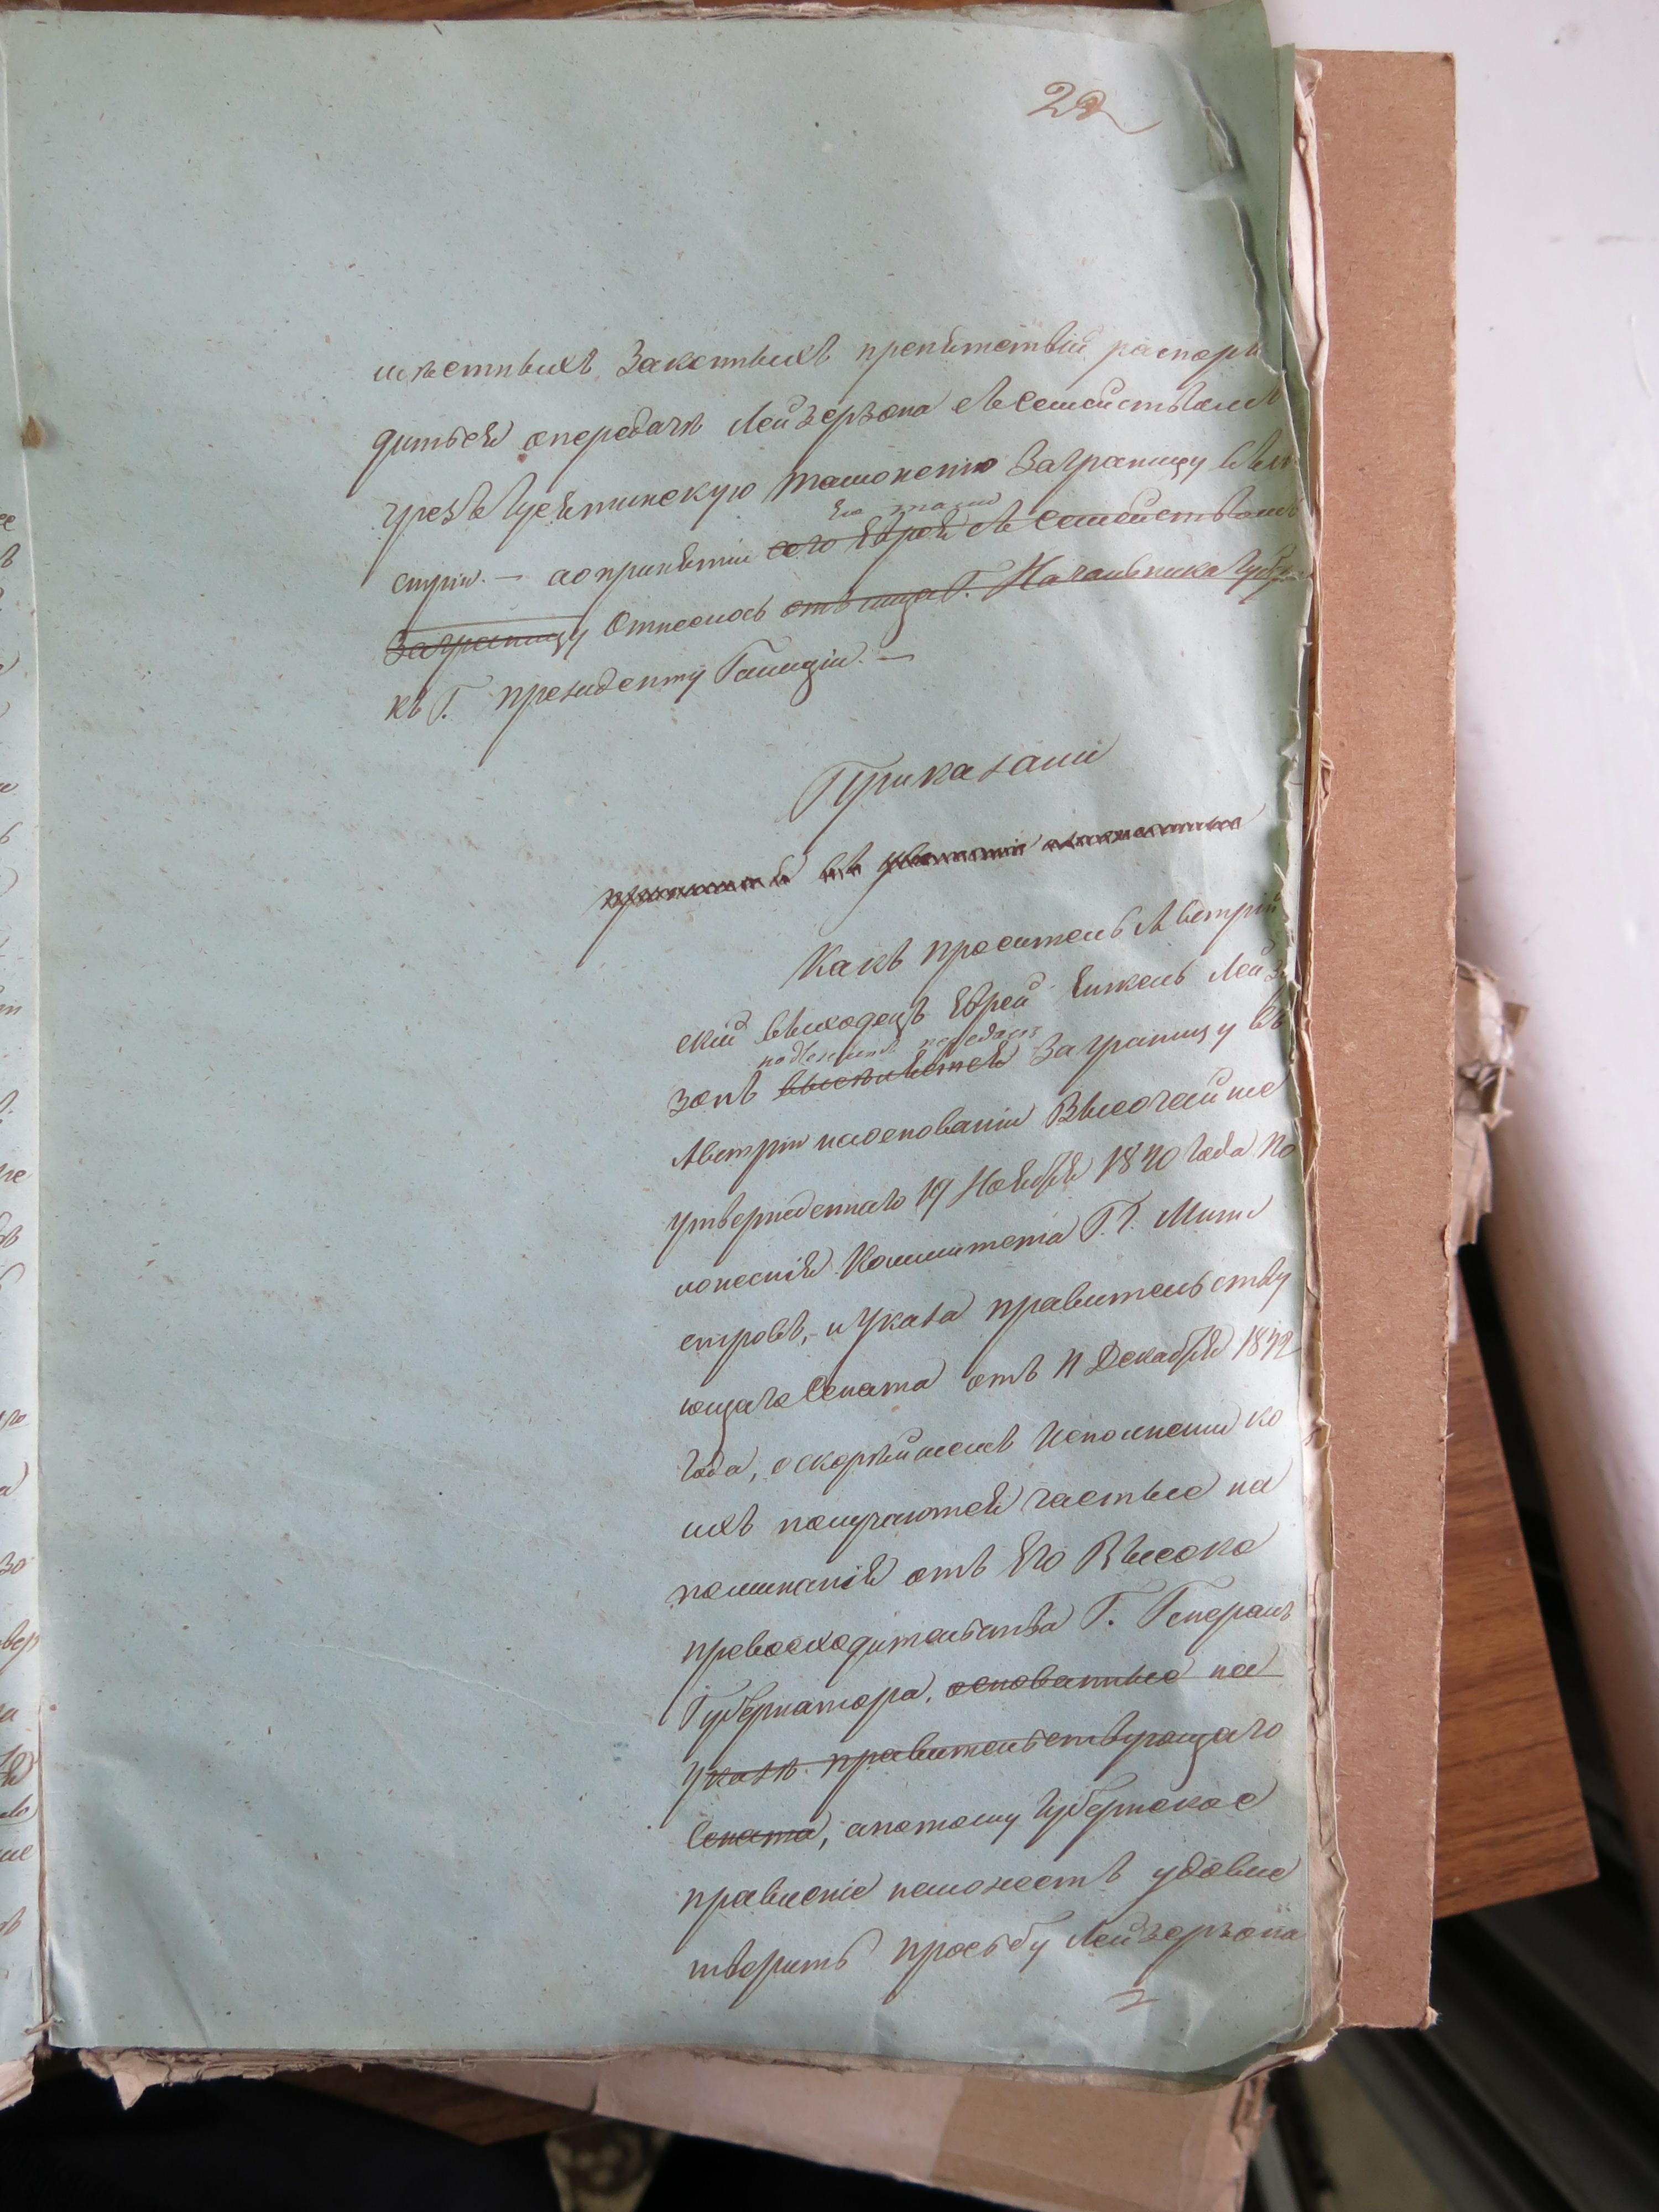 22
мѣстныхъ законныхъ препятствій распоря
диться опередачѣ Лейзерзона съ семействомъ
чрезъ Гусятинскую таможню заграницу въ Ав
стрію. — а о принятіи сего Еврея съ семействомъ
заграницу отнеслось отъ лица Г. Начальника Губер
къ Г. президенту Галиціи. —
Приказали
принимая въ
Какъ проситель Австрій
скій выходецъ Еврей Янкель Лейзер
надлежитъ передачѣ
зонъ высылается заграницу въ
Австрію наоснованіи Высочайше
утвержденнаго 19 Ноября 1840 года по
ложенія Комитета Г.Г. Мини
стровъ, и Указа правительству
ющаго Сената отъ 11 Декабря 1842
года, о скорѣйшемъ исполненіи ко
ихъ получаются частые на
поминанія отъ Его Высоко
превосходительства Г. Генералъ
Губернатора, основанные на
указѣ правительствующаго
Сената, апотому Губернское
правленіе неможетъ удовле
творить просьбу Лейзерзона